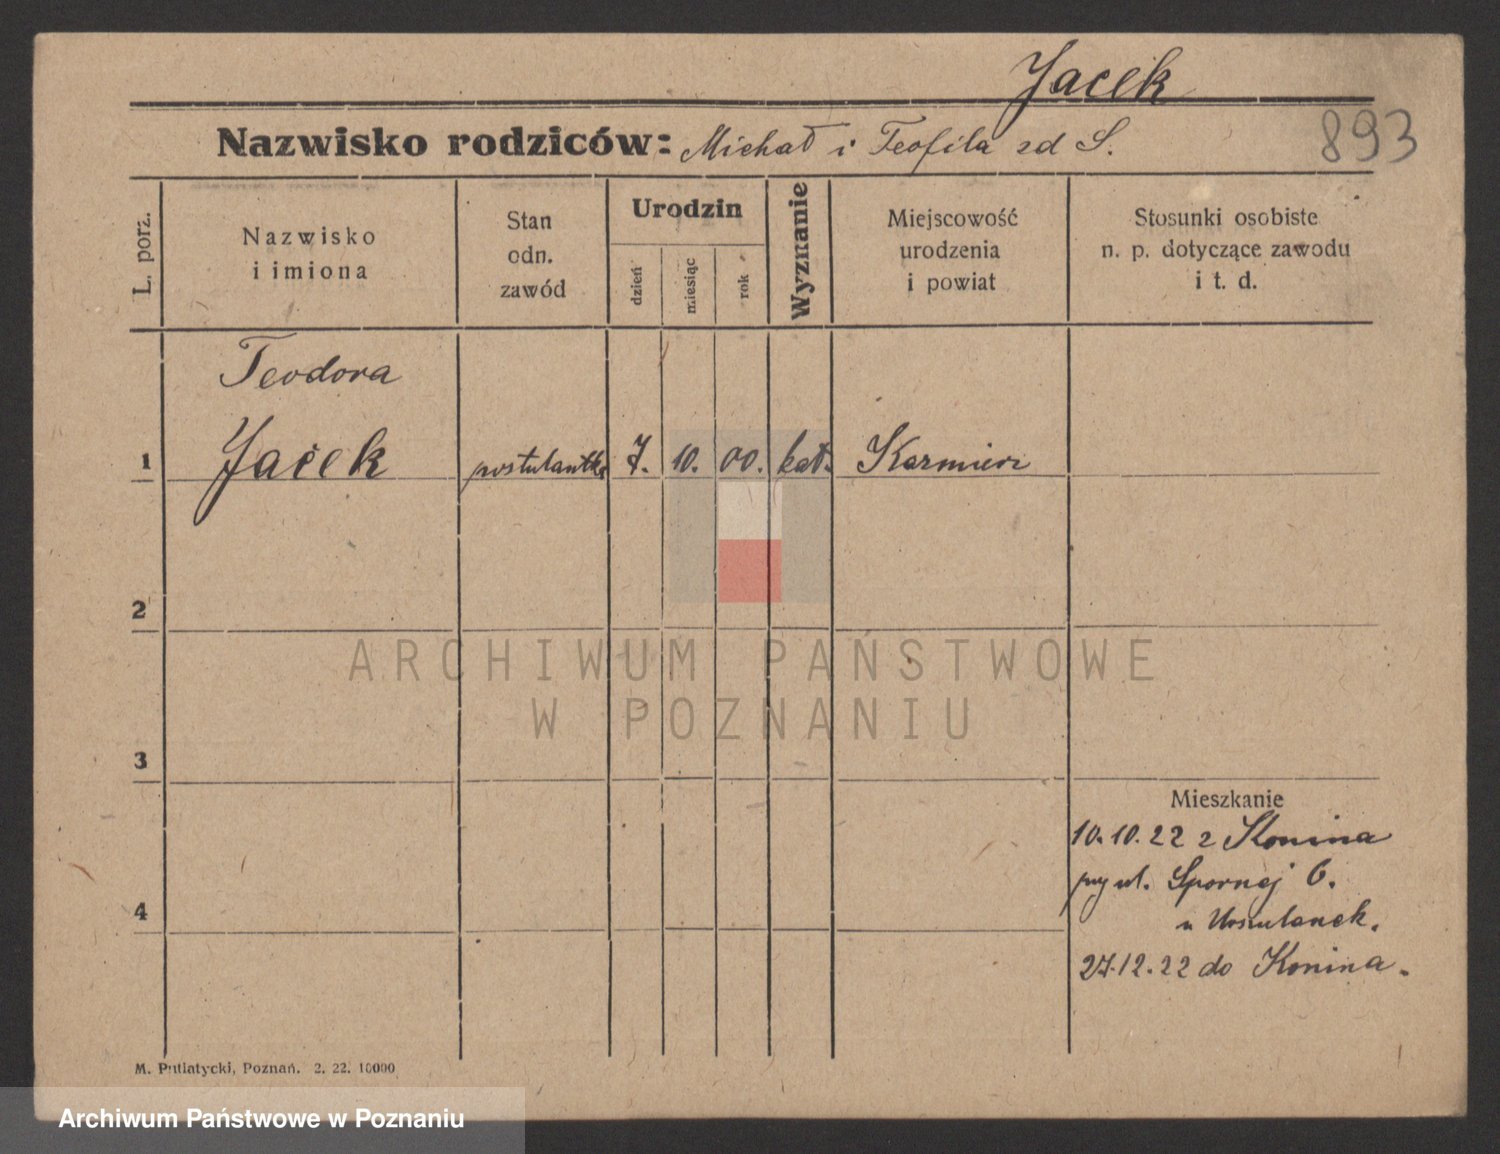 Jacek
Nazwisko rodziców: Michał i Teofila zd S.
893
L. porz.
Nazwisko
i imiona
Stan
odn.
zawód
Urodzin
dzień
miesiąc
rok
Wyznanie
Miejscowość
urodzenia
i powiat
Stosunki osobiste
n. p. dotyczące zawodu
i t. d.
Teodora
1 Jacek postulantka 7. 10. 00. kat. Kazmierz
2
ARCHIWUM PAŃSTWOWE
W POZNANIU
3
Mieszkanie
10.10.22 z Konina
przy ul. Spornej 6.
4
u Urszulanek.
27.12.22 do Konina.
M. Putiatycki, Poznań. 2. 22. 10000
Archiwum Państwowe w Poznaniu